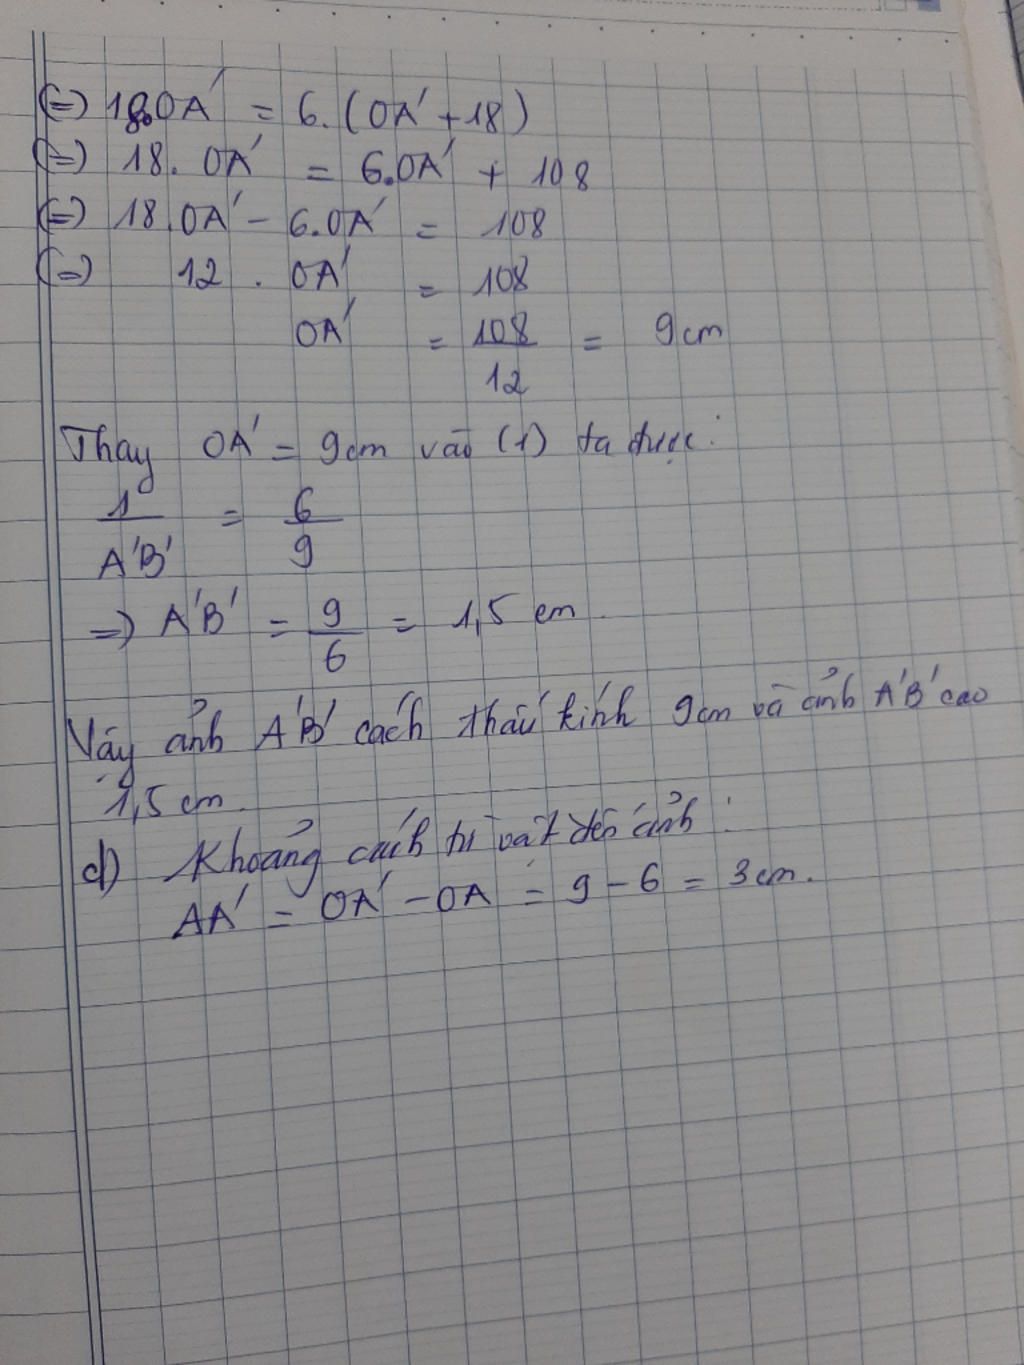 (=) 18.OA' = 6.(OA' + 18)
(=) 18. OA' = 6.OA' + 108
(=) 18.OA' - 6.OA' = 108
(=) 12 . OA' = 108
OA' = 108/12 = 9cm
Thay OA' = 9cm vào (1) ta được:
1/A'B' = 6/9
=) A'B' = 9/6 = 1,5 cm.
Vậy ảnh A'B' cách thấu kính 9cm và ảnh A'B' cao
1,5 cm.
d) Khoảng cách từ vật đến ảnh:
AA' = OA' - OA = 9 - 6 = 3cm.